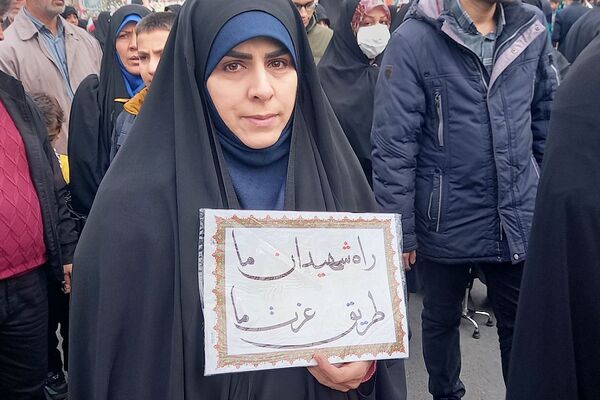 راه شهیدان ما
طریق عزت ما